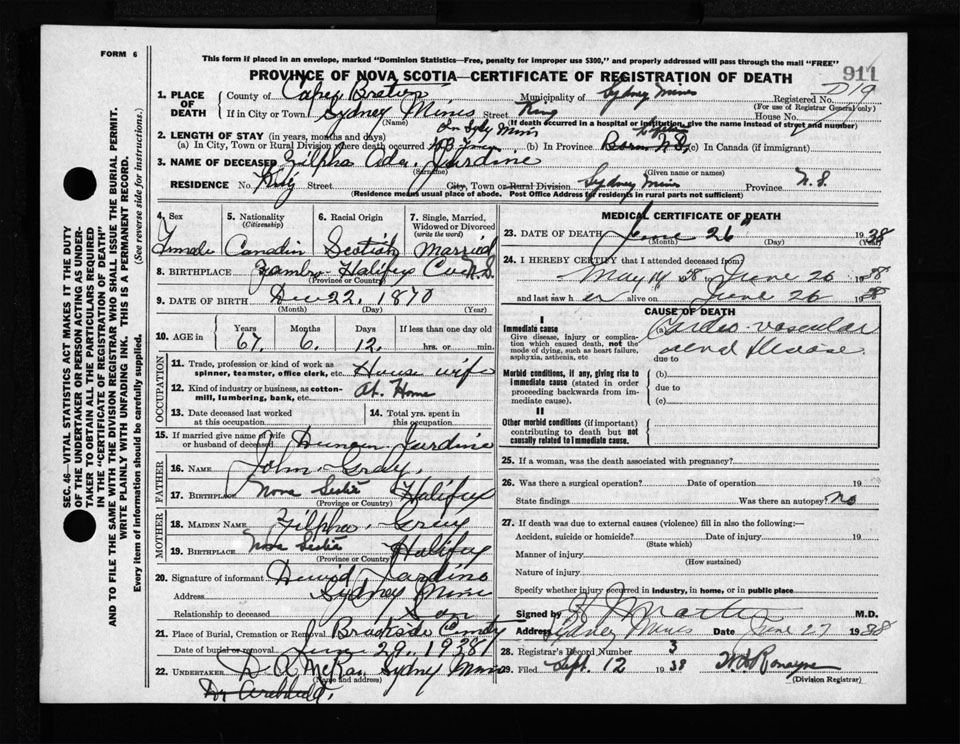 FORM 6
This form if placed in an envelope, marked "Dominion Statistics—Free, penalty for improper use $300," and properly addressed will pass through the mail "FREE"
PROVINCE OF NOVA SCOTIA—CERTIFICATE OF REGISTRATION OF DEATH
911
D 19
SEC. 46—VITAL STATISTICS ACT MAKES IT THE DUTY
OF THE UNDERTAKER OR PERSON ACTING AS UNDER-
TAKER TO OBTAIN ALL THE PARTICULARS REQUIRED
IN THE "CERTIFICATE OF REGISTRATION OF DEATH"
AND TO FILE THE SAME WITH THE DIVISION REGISTRAR WHO SHALL ISSUE THE BURIAL PERMIT.
WRITE PLAINLY WITH UNFADING INK. THIS IS A PERMANENT RECORD.
Every item of information should be carefully supplied. (See reverse side for instructions.)
1. PLACE OF DEATH County of Cape Breton Municipality of Sydney Mines Registered No.
(For use of Registrar General only)
If in City or Town Sydney Mines Street King House No.
(Name) (If death occurred in a hospital or institution, give the name instead of street and number)
2. LENGTH OF STAY (in years, months and days)
(a) In City, Town or Rural Division where death occurred (b) In Province (c) In Canada (if immigrant)
3. NAME OF DECEASED Zilpha Ada Jardine
(Surname) (Given name or names)
RESIDENCE No. King Street City, Town or Rural Division Sydney Mines Province N.S.
(Residence means usual place of abode. Post Office Address for residents in rural parts not sufficient)
4. Sex 5. Nationality (Citizenship) 6. Racial Origin 7. Single, Married, Widowed or Divorced (write the word)
Female Canadin Scotish Married
8. BIRTHPLACE Halifax N.S.
(Province or Country)
9. DATE OF BIRTH Dec 22, 1870
(Month) (Day) (Year)
10. AGE in Years Months Days If less than one day old
67. 6. 12. hrs. or min.
OCCUPATION
11. Trade, profession or kind of work as spinner, teamster, office clerk, etc. House wife
12. Kind of industry or business, as cotton-mill, lumbering, bank, etc. At. Home
13. Date deceased last worked at this occupation
14. Total yrs. spent in this occupation
15. If married give name of wife or husband of deceased Duncan Jardine
FATHER
16. NAME John Gray
17. BIRTHPLACE Nova Scotia Halifax
(Province or Country)
MOTHER
18. MAIDEN NAME Zilpha Gray
19. BIRTHPLACE Nova Scotia Halifax
(Province or Country)
20. Signature of informant David Jardine
Address Sydney Mines
Relationship to deceased Son
21. Place of Burial, Cremation or Removal Brookside
Date of burial or removal June 29, 1938
22. UNDERTAKER D. A. McRae Sydney Mines
(Name and address)
MEDICAL CERTIFICATE OF DEATH
23. DATE OF DEATH June 26" 1938
(Month) (Day) (Year)
24. I HEREBY CERTIFY that I attended deceased from
May 14 1938 to June 26 1938
and last saw her alive on June 26 1938
CAUSE OF DEATH
I
Immediate cause
Give disease, injury or complication which caused death, not the mode of dying, such as heart failure, asphyxia, asthenia, etc
(a) Cardio-vascular
renal disease
due to
Morbid conditions, if any, giving rise to immediate cause (stated in order proceeding backwards from immediate cause).
(b)
due to
(c)
II
Other morbid conditions (if important) contributing to death but not causally related to immediate cause.
25. If a woman, was the death associated with pregnancy?
26. Was there a surgical operation? Date of operation 19
State findings Was there an autopsy? no
27. If death was due to external causes (violence) fill in also the following:—
Accident, suicide or homicide? Date of injury 19
(State which)
Manner of injury
(How sustained)
Nature of injury
Specify whether injury occurred in industry, in home, or in public place
Signed by M.D.
Address Sydney Mines Date June 27 1938
28. Registrar's Record Number 3
29. Filed Sept. 12 1938
(Division Registrar)